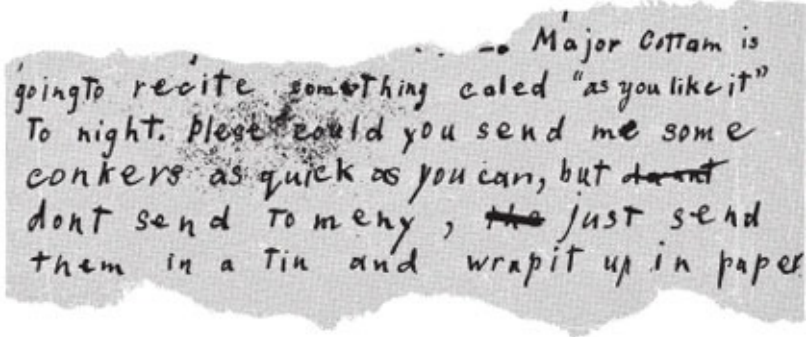 Major Cottam is
going to recite something caled "as you like it"
To night. Plese could you send me some
conkers as quick as you can, but
dont send To meny, the just send
them in a Tin and wrapit up in paper